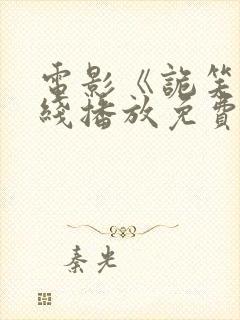 電影《詭笑
綫播放免費
秦光